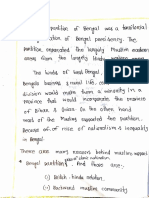 partition of Bengal was a territorial
of Bengal presidency. The
partition separated the largely Muslim eastern
areas from the largely Hindu western
The hindu of west Bengal
division would make them a minority in a
province that would incorporate the province
of Bihar & Orissa. On the other hand
most of the Muslims supported the partition.
Because of rise of nationalism & inequality
in Bengal.
There are many reasons behind muslim support
Bengal partition. And those are:-
(i) British-hindu relation.
(ii) Backward muslim community